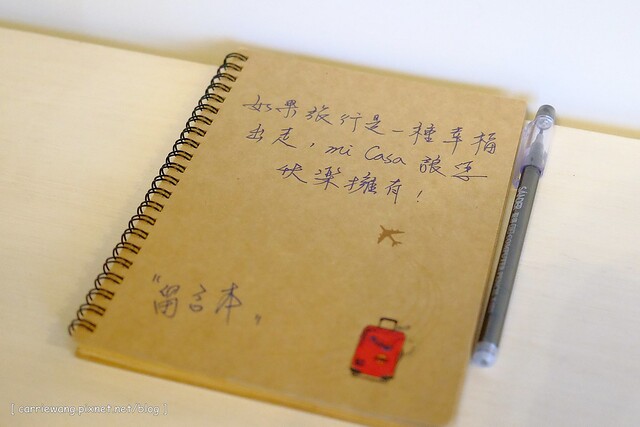 如果旅行是一種幸福
出走，mi Casa 讓您
快樂擁有！
"留言本"
[ carriewang.pixnet.net/blog ]